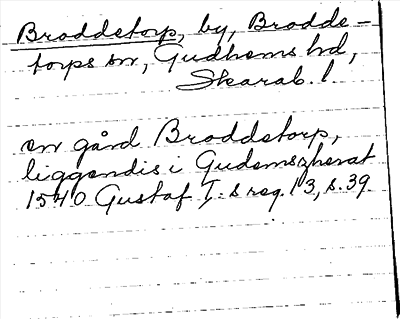 Broddetorp, by, Brodde-
torps sn, Gudhems hd,
Skarab. l.
en gård Broddetorp,
liggendis i Gudemszherat
1540 Gustaf I:s reg. 13, s. 39.